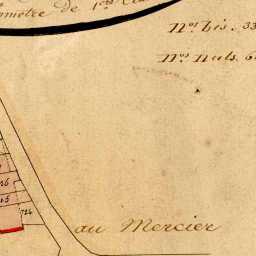 mètre de 1ere Cla
Nos bis. 33
Nos nuls. 6
26
724
au Mercier